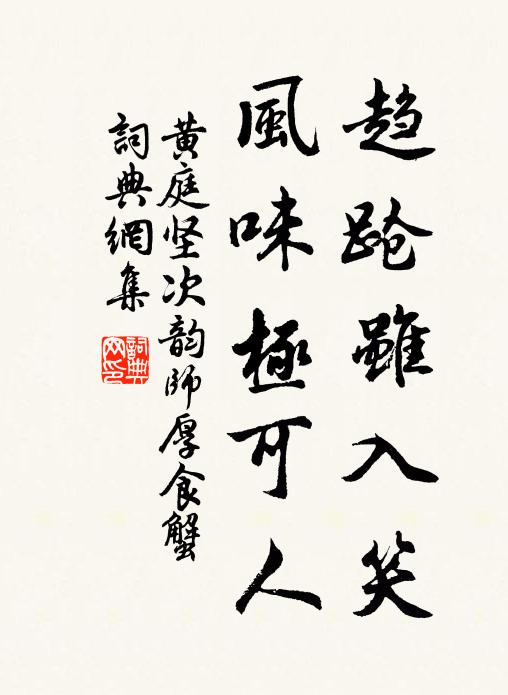 趋蹌雖入笑
風味極可人
黄庭坚次韵師厚食蟹
詞典網集
詞典网印